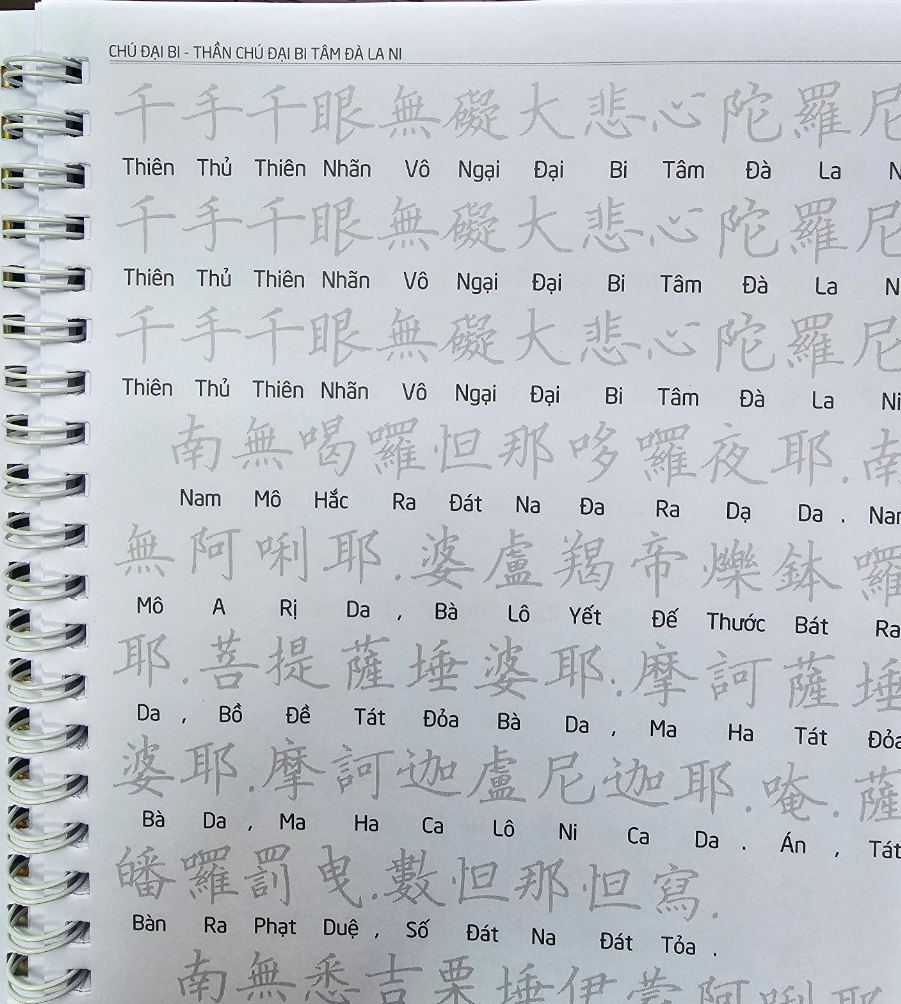 CHÚ ĐẠI BI - THẦN CHÚ ĐẠI BI TÂM ĐÀ LA NI
千手千眼無礙大悲心陀羅尼
Thiên Thủ Thiên Nhãn Vô Ngại Đại Bi Tâm Đà La N
千手千眼無礙大悲心陀羅尼
Thiên Thủ Thiên Nhãn Vô Ngại Đại Bi Tâm Đà La N
千手千眼無礙大悲心陀羅尼
Thiên Thủ Thiên Nhãn Vô Ngại Đại Bi Tâm Đà La Ni
南無喝囉怛那哆囉夜耶.南
Nam Mô Hắc Ra Đát Na Đa Ra Dạ Da . Nam
無阿唎耶.婆盧羯帝爍鉢囉
Mô A Rị Da , Bà Lô Yết Đế Thước Bát Ra
耶.菩提薩埵婆耶.摩訶薩埵
Da , Bồ Đề Tát Đỏa Bà Da , Ma Ha Tát Đỏa
婆耶.摩訶迦盧尼迦耶.唵.薩
Bà Da , Ma Ha Ca Lô Ni Ca Da . Án , Tát
皤囉罰曳.數怛那怛寫.
Bàn Ra Phạt Duệ , Số Đát Na Đát Tỏa .
南無悉吉栗埵伊蒙阿唎耶